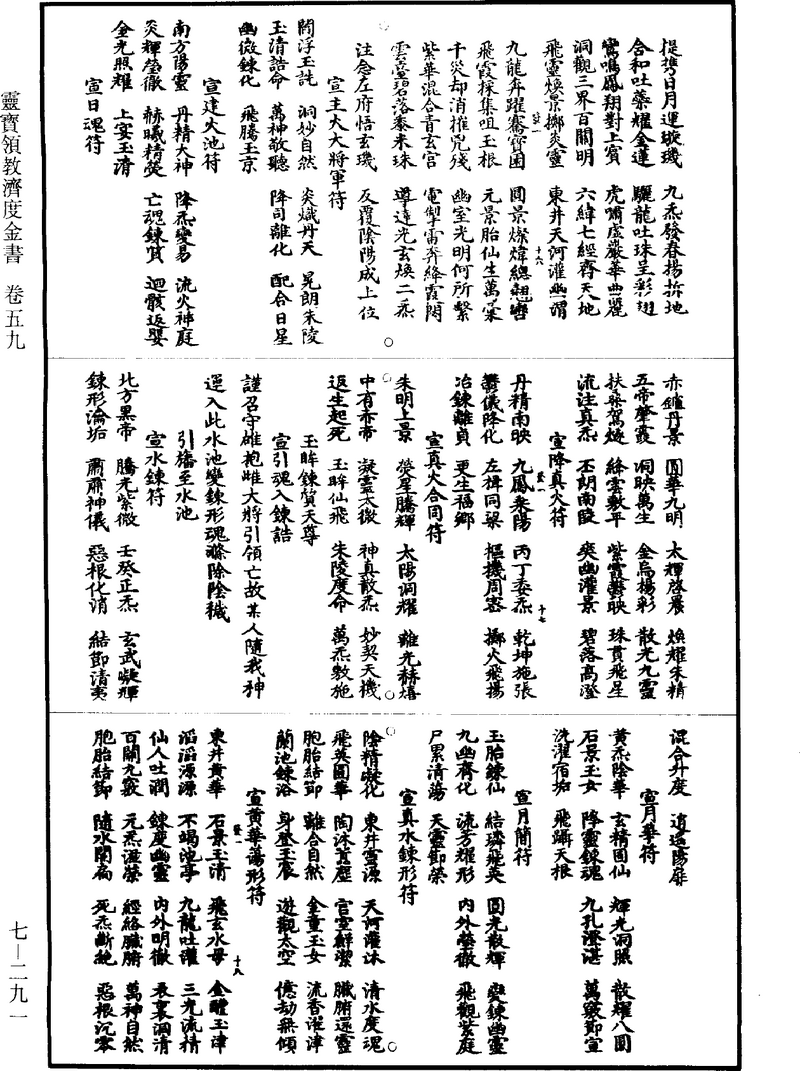 提攜日月運璇璣　九炁發春揚拆地
合和吐藥耀金蓮　驪龍吐珠呈彩翅
鸞鳴鳳翔對上賓　虎嘯虛巖華典麗
洞觀三界百關明　六緯七經齊天地
飛靈煥景擲炎靈　東井天河灌幽謂
九龍奔躍騫寶園　圓景燦煒總翹轡
飛霞採集咀玉根　元景胎仙生萬彙
千災却消摧兇殘　幽室光明何所繫
紫華混合青玄宮　電掣雷奔絳霞閉
雲臺碧落黍米珠　導達光玄煥二炁
注念左府悟玄璣　反覆陰陽成上位
宣主火大將軍符
閻浮玉訛　洞妙自然　炎熾丹天　晃朗朱陵
玉清誥命　萬神敬聽　降司離化　配合日星
幽微鍊化　飛騰玉京
宣建火池符
南方陽靈　丹精大神　降炁變易　流火神庭
炎輝瑩徹　赫曦精熒　亡魂鍊質　迴骸返嬰
金光照耀　上宴玉清
宣日魂符
赤鑪丹景　圓華九明　太輝啓晨　煥耀朱精
五帝肇霞　洞映萬生　金烏楊彩　散光九靈
扶桑駕𩙪　絳雲敷平　紫霞鬱映　珠貫飛星
流注真炁　丕朗南陵　奭幽灌景　碧落高澄
宣降真火符
丹精南映　九鳳乘陽　丙丁委炁　乾坤施張
鬱儀降化　左揖同梁　樞機周密　擲火飛揚
冶鍊離貞　更生福鄉
宣真火合同符
朱明上景　熒星騰輝　太陽洞耀　離光赫熺
中有赤帝　凝靈太微　神真散炁　妙契天機
返生起死　玉眸仙飛　朱陵度命　萬炁敷施
玉眸鍊質天尊
宣引魂入鍊誥
謹召守雄抱雌大將引領亡故某人隨我神
運入此水池變鍊形魂滌除陰穢
引旛至水池
宣水鍊符
北方黑帝　騰光紫微　壬癸正炁　玄武凝輝
鍊形淪垢　肅肅神儀　惡根化消　結節清夷
混合升度　逍遙陽扉
宣月華符
黃炁陰華　玄精固仙　輝光洞照　散耀八圓
石景玉女　降靈鍊魂　九孔澄湛　萬竅節宣
洗濯宿垢　飛躡天根
宣月簡符
玉胎鍊仙　結璘飛英　圓光散輝　變鍊幽靈
九幽齊化　流芳耀形　內外瑩徹　飛觀紫庭
尸累清蕩　天靈節榮
宣真水鍊形符
陰精凝化　東井靈源　天河灌沐　清水度魂
飛英圓華　陶沐寬塵　官室鮮潔　臟腑還靈
胞胎結節　離合自然　金童玉女　流香灌津
蘭池鍊浴　身登玉宸　遊觀太空　億劫無傾
宣黃華蕩形符
東井黃華　石景玉清　飛玄水母　金醴玉津
滔滔源源　不竭池亭　九龍吐灌　三光流精
仙人吐潤　鍊度幽靈　內外明徹　表裏洞清
百關九竅　元炁滋榮　經絡臟腑　萬神自然
胞胎結節　隨水開扃　死炁斷絕　惡根沉零
靈寶領教濟度金書　卷五九
七—二九一